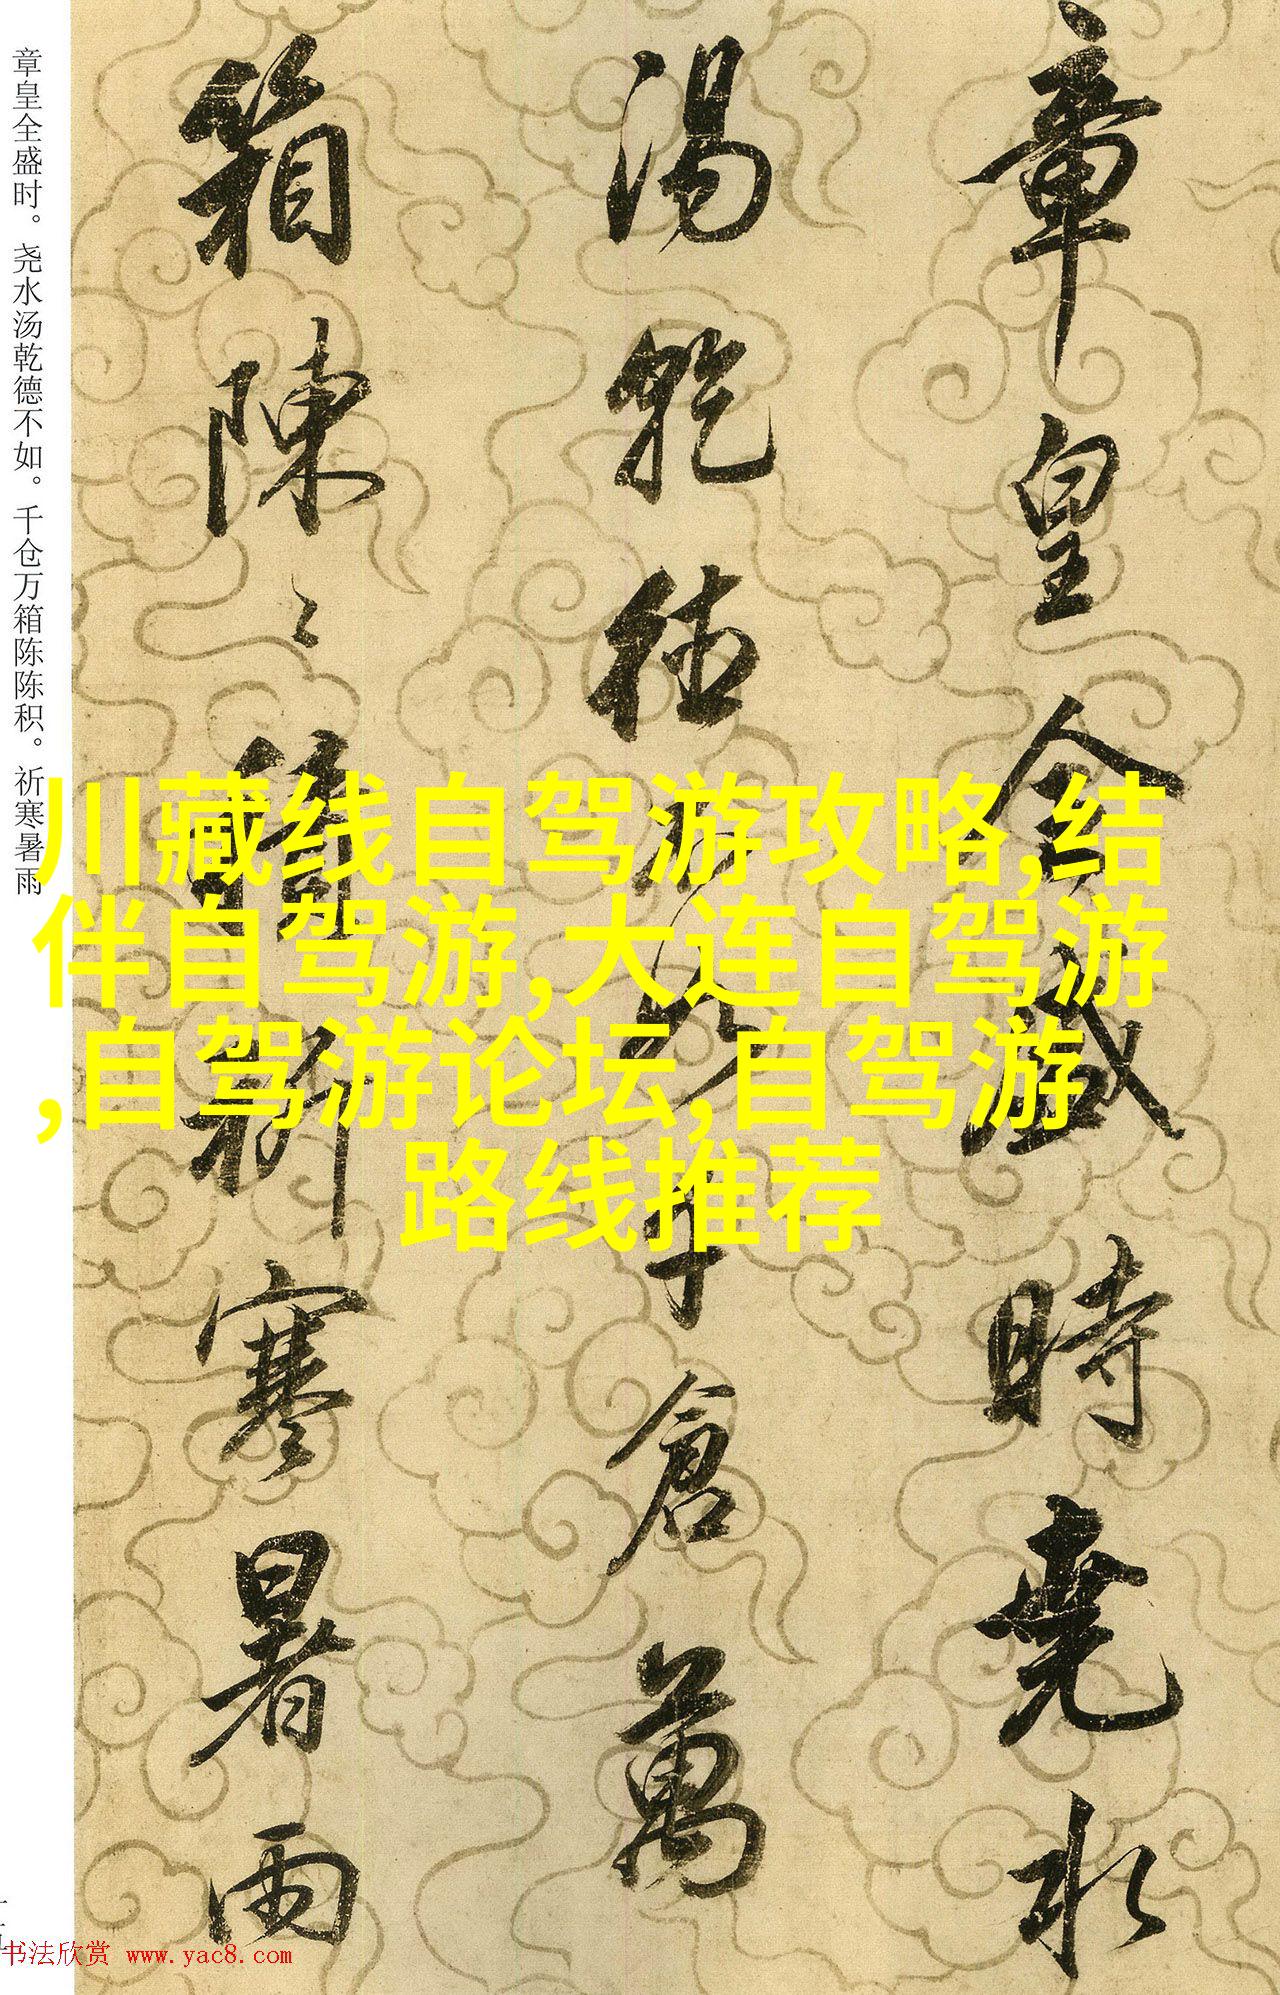 章皇全盛时。尧水汤乾德不如。千仓万箱陈陈积。祈寒暑雨
章皇全盛時堯水
湯乾德不如千倉萬
箱陳〻積祈寒暑雨
川藏线自驾游攻略,结
伴自驾游,大连自驾游
,自驾游论坛,自驾游
路线推荐
书法欣赏 www.yac8.com